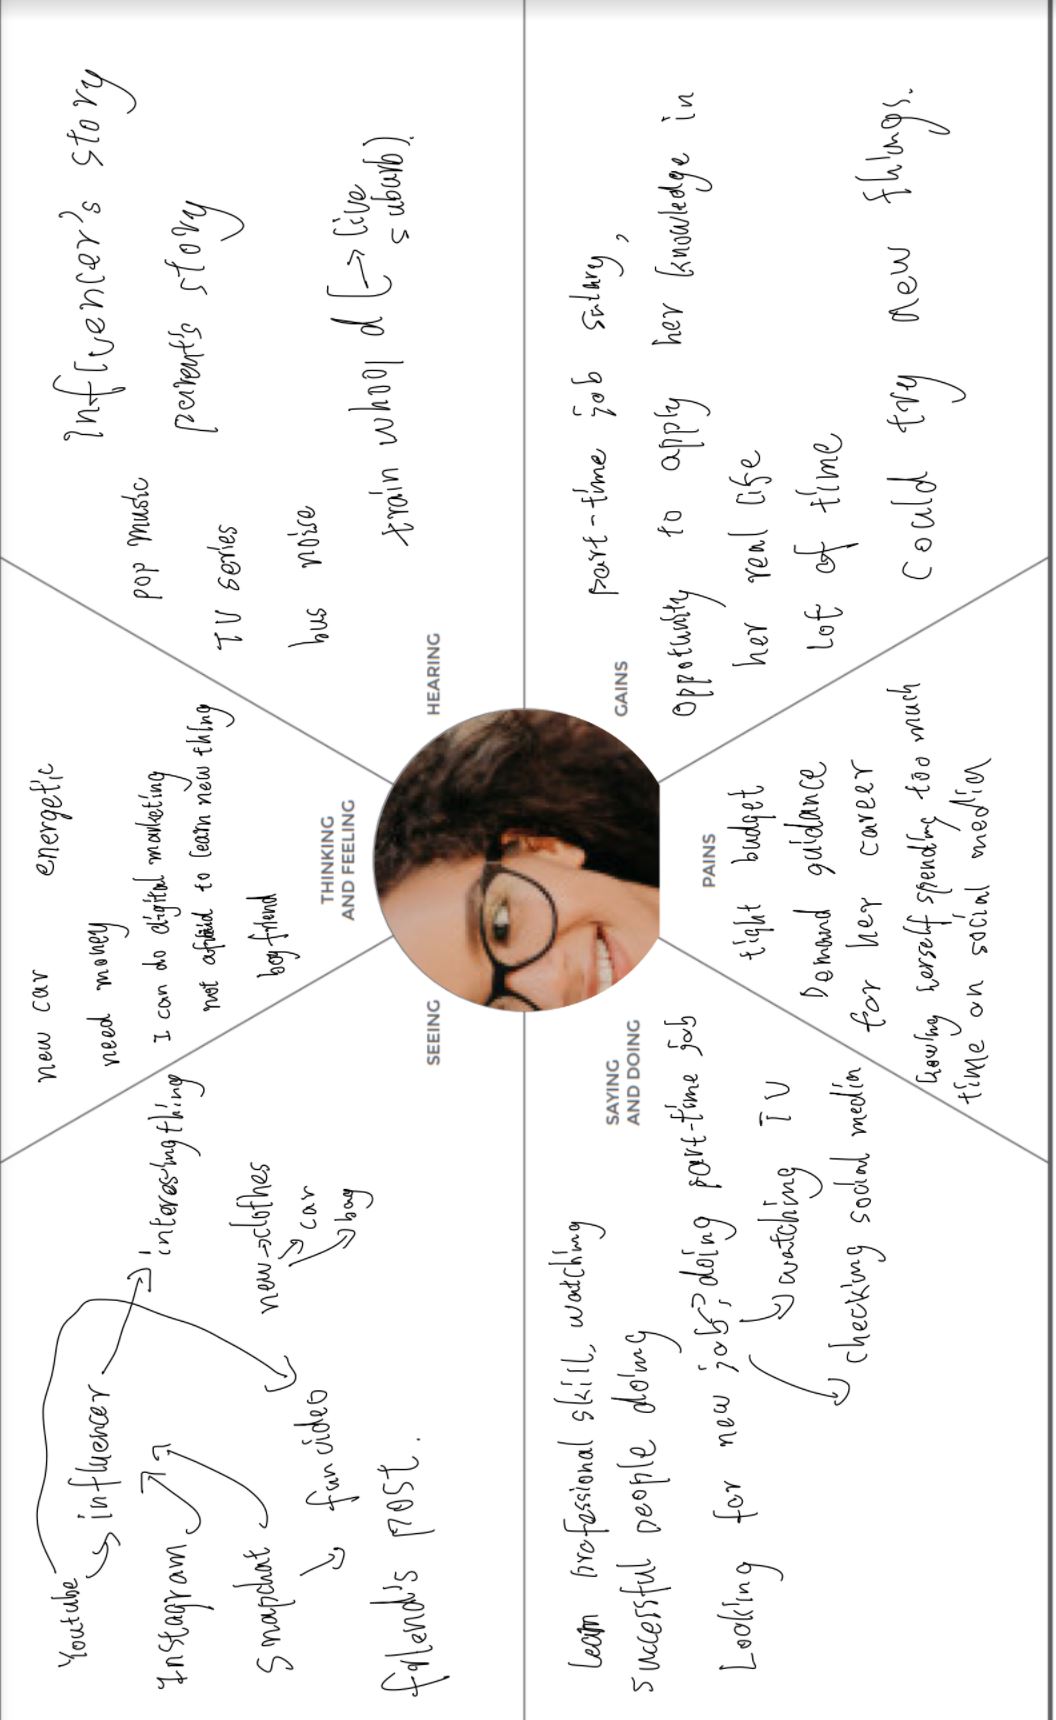 Youtube
influencer
Instagram
interesingthing
Snapchat
new →clothes
car
bag
fun video
friend's post.
SEEING
new car
energetic
need money
I can do digital marketing
not afraid to learn new thing
boyfriend
THINKING
AND FEELING
Influencer's story
pop music
parent's story
TV series
bus noise
train whoop d (→ live
suburb).
HEARING
learn professional skill, watching
successful people doing
Looking for new job, doing part-time job
watching TV
checking social media
SAYING
AND DOING
PAINS
tight budget
Demand guidance
for her career
herself spending too much
time on social media
GAINS
part-time job salary,
oppotunity to apply her knowledge in
her real life
lot of time
could try new things.